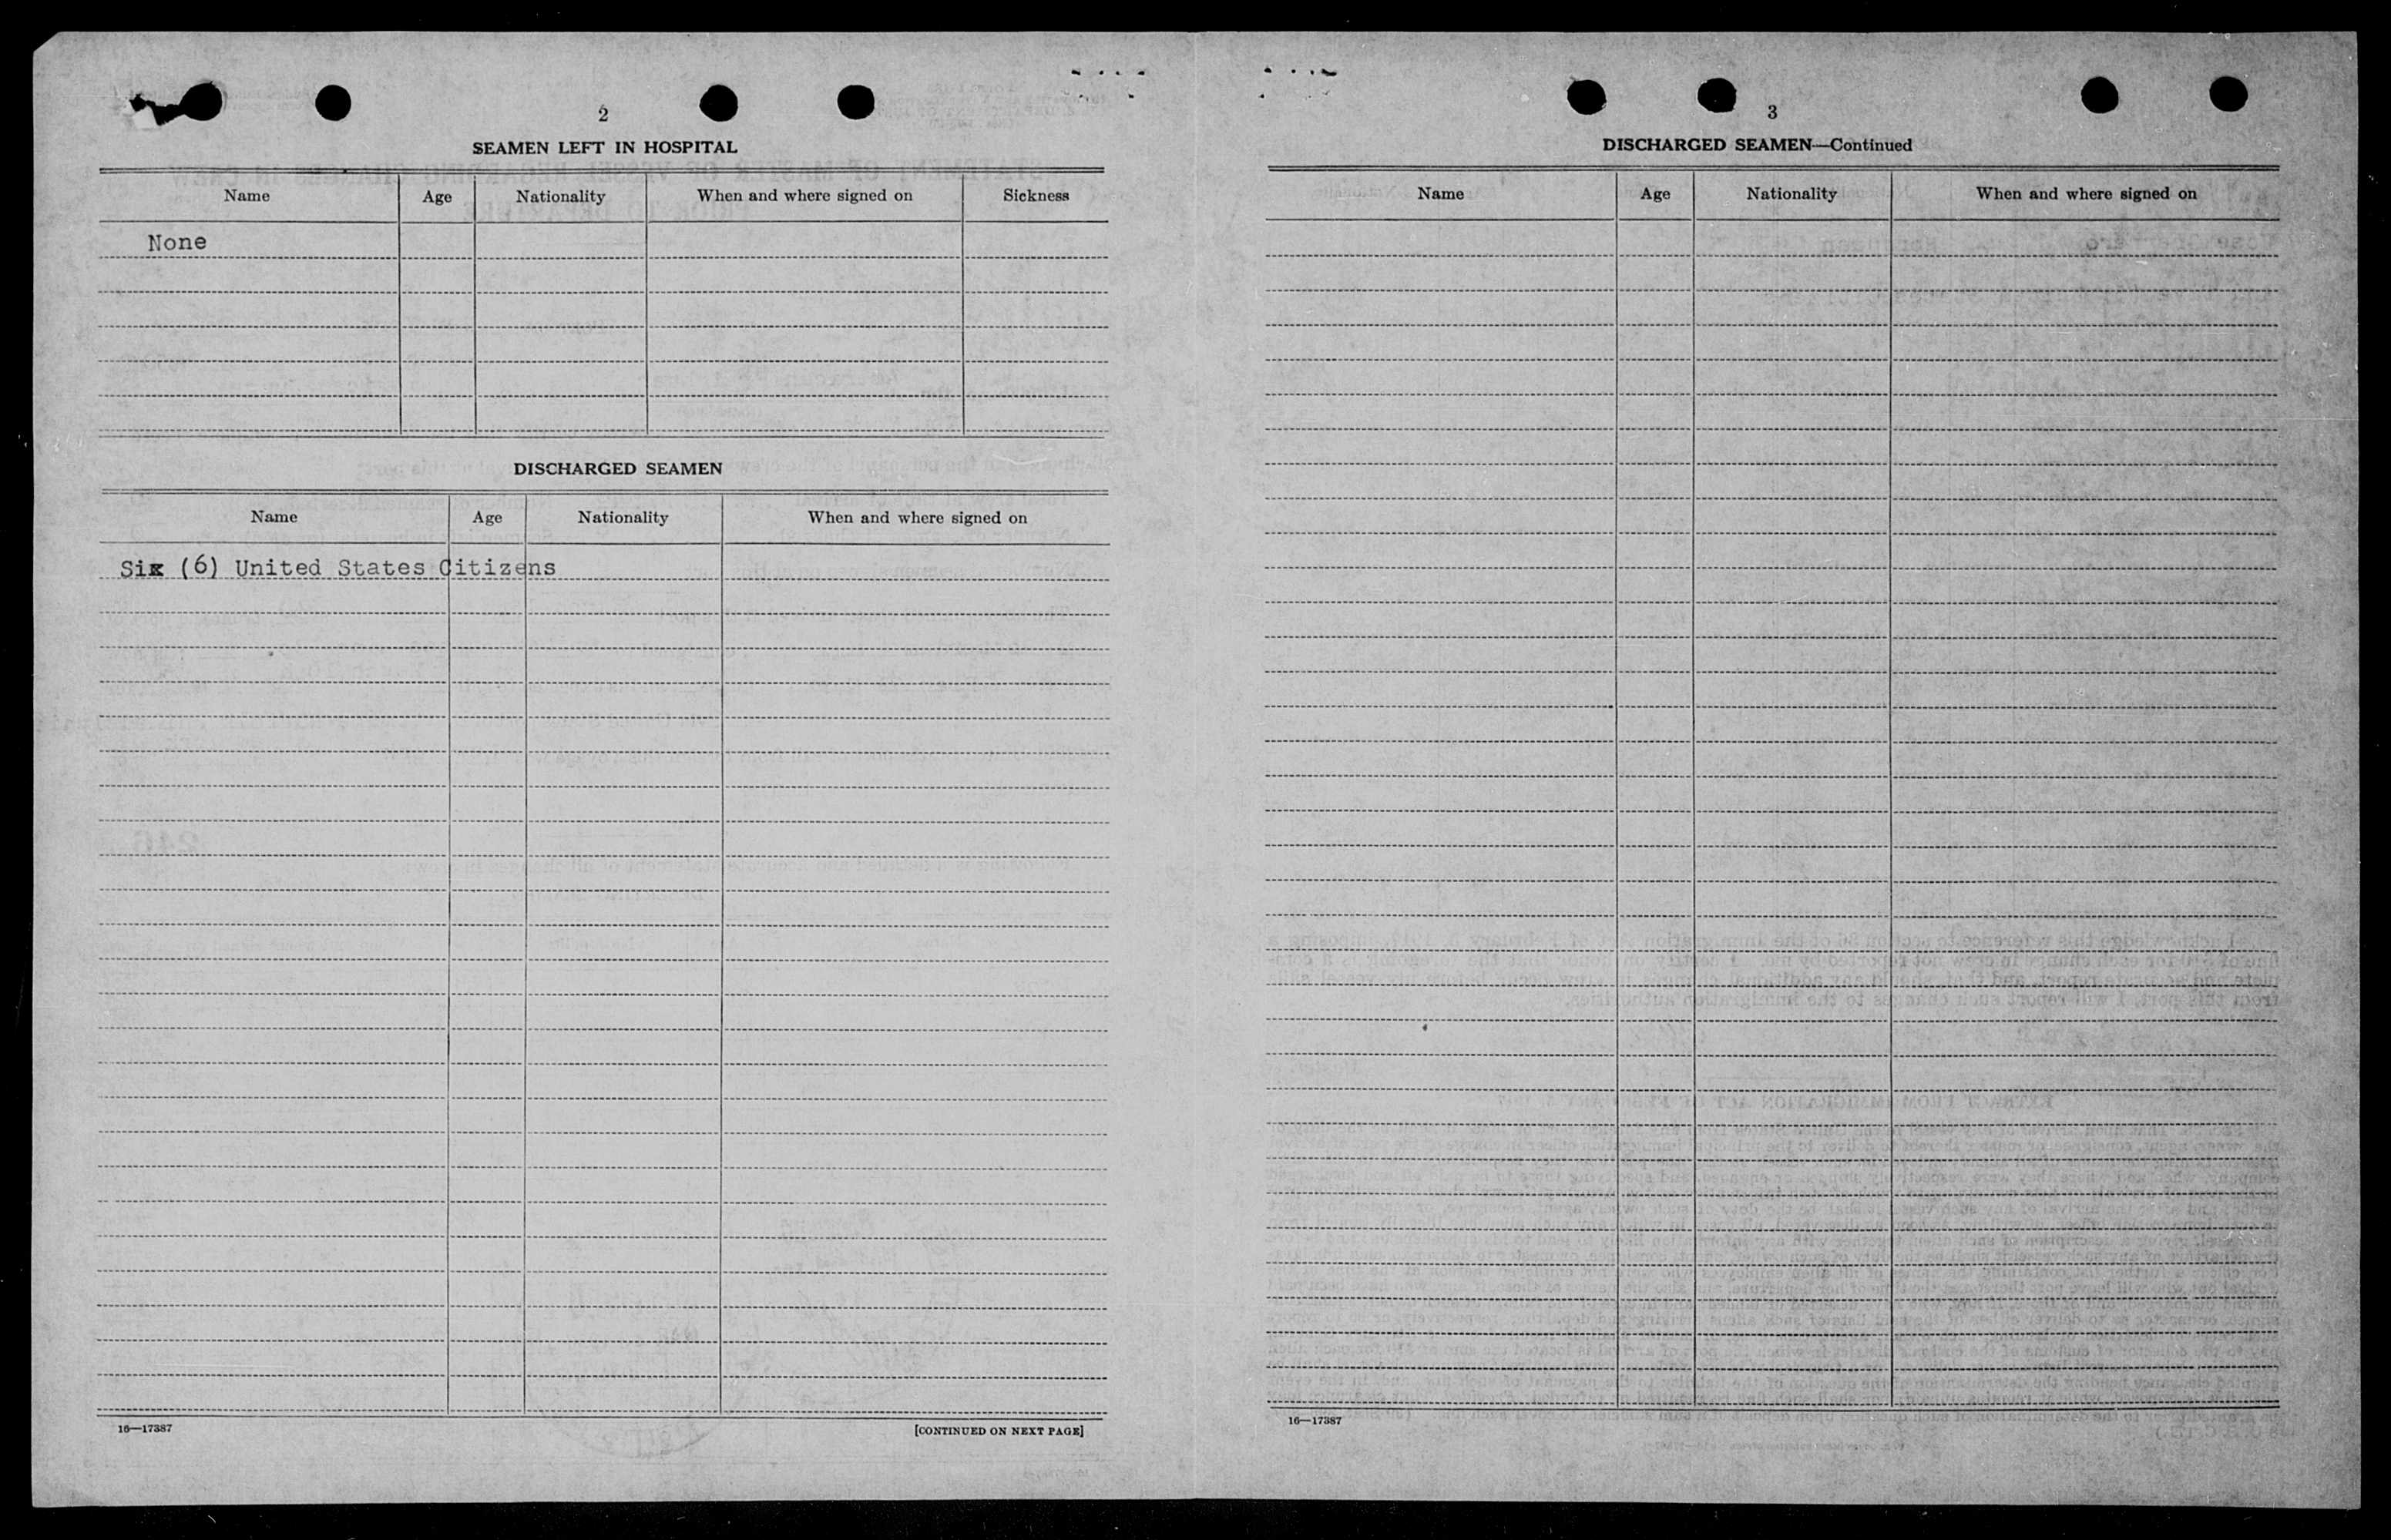 2
SEAMEN LEFT IN HOSPITAL
Name Age Nationality When and where signed on Sickness
None
DISCHARGED SEAMEN
Name Age Nationality When and where signed on
Six (6) United States Citizens
16—17387 [CONTINUED ON NEXT PAGE]
3
DISCHARGED SEAMEN—Continued
Name Age Nationality When and where signed on
16—17387